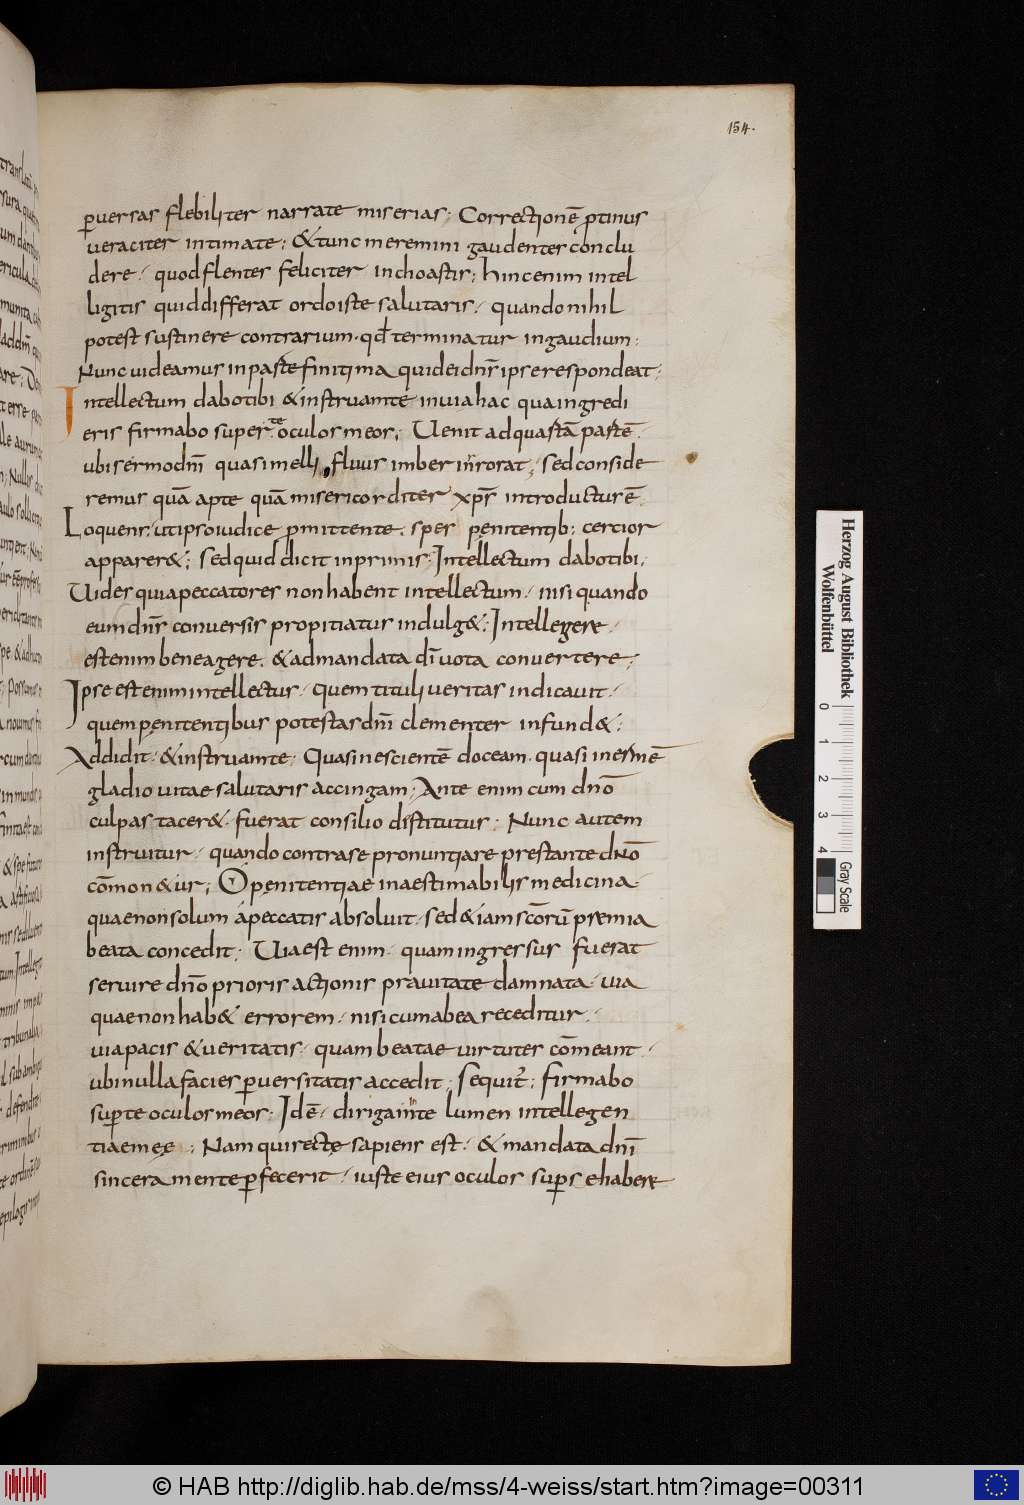 154.
ꝑuersas flebiliter narrate miserias; Correctionē ꝓtinus
ueraciter intimate; &tunc meremini gaudenter conclu
dere · quod flenter feliciter inchoastis; hinc enim intel
ligitis quid differat ordo iste salutaris · quando nihil
potest sustinere contrarium · qđ terminatur in gaudium;
Nunc uideamus in parte finitima quid ei dn̄s ipse respondeat;
Intellectum dabo tibi & instruam te in uia hac qua ingredi
eris firmabo super te oculos meos; Uenit ad quartā partē
ubi sermo dn̄i quasi melli fluus imber inrorat; sed conside
remus quā apte quā misericorditer xp̄s introductus ē
Loquens; ut ipso iudice ꝓmittente · spes pęnitentib; certior
apparer&; sed quid dicit inprimis; Intellectum dabo tibi;
Uides quia peccatores non habent intellectum · nisi quando
eum dn̄s conuersis propitiatus indulg&; Intellegere ·
est enim bene agere · & ad mandata dī uota conuertere;
Ipse est enim intellectus · quem tituli ueritas indicauit ·
quem pęnitentibus potestas dn̄i clementer infund&;
Addidit · & instruam te; Quasi nescientē doceam · quasi inermē
gladio uitae salutaris accingam; Ante enim cum dn̄o
culpas tacer& · fuerat consilio distitutus; Nunc autem
instruitur · quando contra se pronuntiare prestante dn̄o
cōmon&ur; O pęnitentiae inaestimabilis medicina ·
quae non solum a peccatis absoluit · sed & iam sc̄orū premia
beata concedit; Uia est enim · quam ingressus fuerat
seruire dn̄o prioris actionis prauitate damnata · uia
quae non hab& errorem · nisi cum ab ea receditur ·
uia pacis & ueritatis · quam beatae uirtutes cōmeant ·
ubi nulla facies ꝑuersitatis accedit; Sequit̄; Firmabo
suꝑ te oculos meos; Id ē · dirigam in te lumen intellegen
tiae meę; Nam qui rectę sapiens est · & mandata dn̄i
sincera mente ꝑfecerit · iuste eius oculos suꝑ se habere
Herzog August Bibliothek
Wolfenbüttel
0 1 2 3 4
Gray Scale
© HAB http://diglib.hab.de/mss/4-weiss/start.htm?image=00311